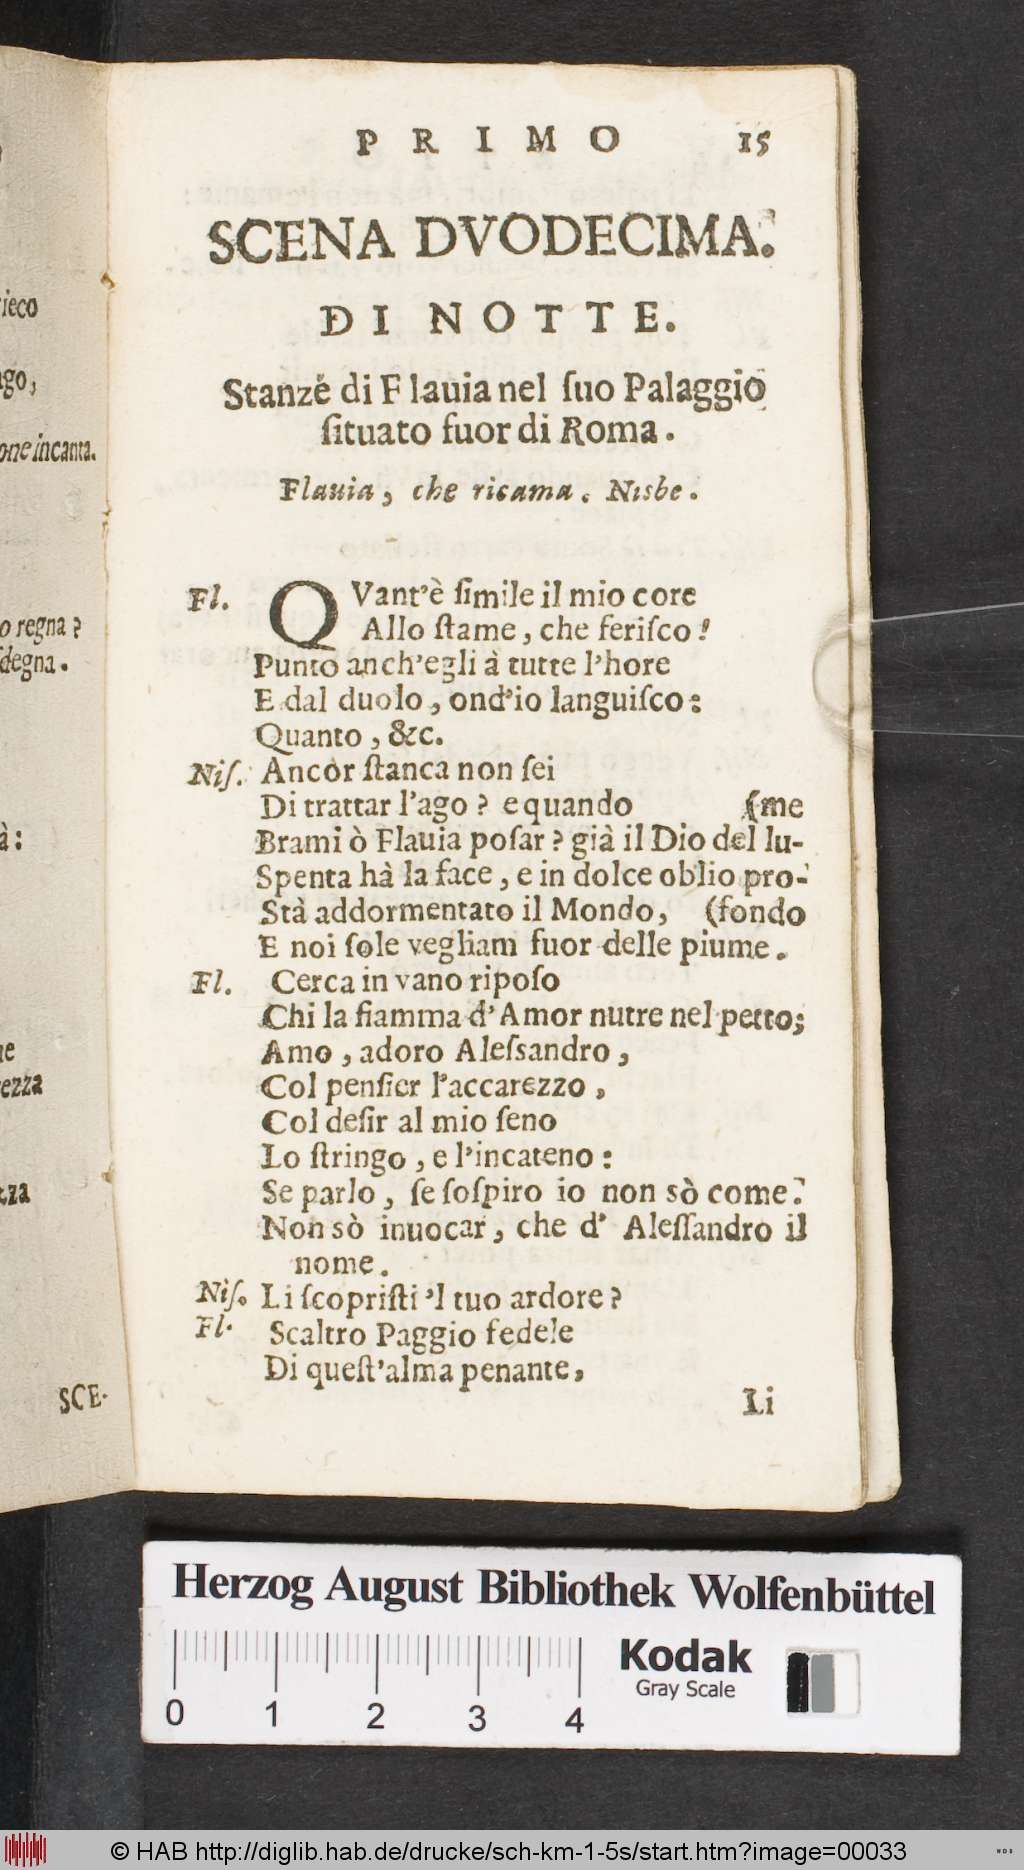 ieco
ago,
one incanta.
o regna?
sdegna.
à:
ne
ezza
zza
SCE-
PRIMO 15
SCENA DVODECIMA.
DI NOTTE.
Stanze di Flauia nel ſuo Palaggio
ſituato fuor di Roma.
Flauia, che ricama. Nisbe.
Fl. QVant'è ſimile il mio core
Allo ſtame, che feriſco!
Punto anch'egli à tutte l'hore
E dal duolo, ond'io languiſco:
Quanto, &c.
Niſ. Ancor ſtanca non ſei
Di trattar l'ago? e quando (me
Brami ò Flauia poſar? già il Dio del lu-
Spenta hà la face, e in dolce oblio pro-
Stà addormentato il Mondo, (fondo
E noi ſole vegliam fuor delle piume.
Fl. Cerca in vano ripoſo
Chi la fiamma d'Amor nutre nel petto;
Amo, adoro Aleſsandro,
Col penſier l'accarezzo,
Col deſir al mio ſeno
Lo ſtringo, e l'incateno:
Se parlo, ſe ſoſpiro io non sò come.
Non sò inuocar, che d' Aleſſandro il
nome.
Niſ. Li ſcopriſti 'l tuo ardore?
Fl. Scaltro Paggio fedele
Di queſt'alma penante,
Li
Herzog August Bibliothek Wolfenbüttel
0 1 2 3 4
Kodak
Gray Scale
© HAB http://diglib.hab.de/drucke/sch-km-1-5s/start.htm?image=00033